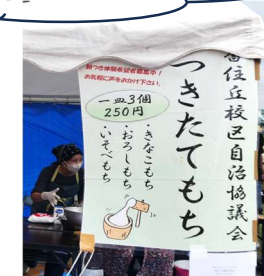 住丘校区自治協議会
つきたてもち
餅つき体験希望者募集中!
お気軽に声をおかけ下さい。
一皿3個
250円
・きなこもち
・おろしもち
・いそべもち